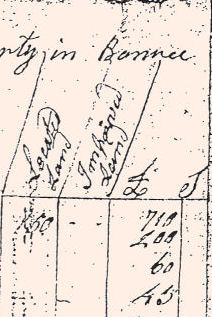 nty in Bonnee
Located Land
Improved Land
£ S
50 - 710
200
60
- 45